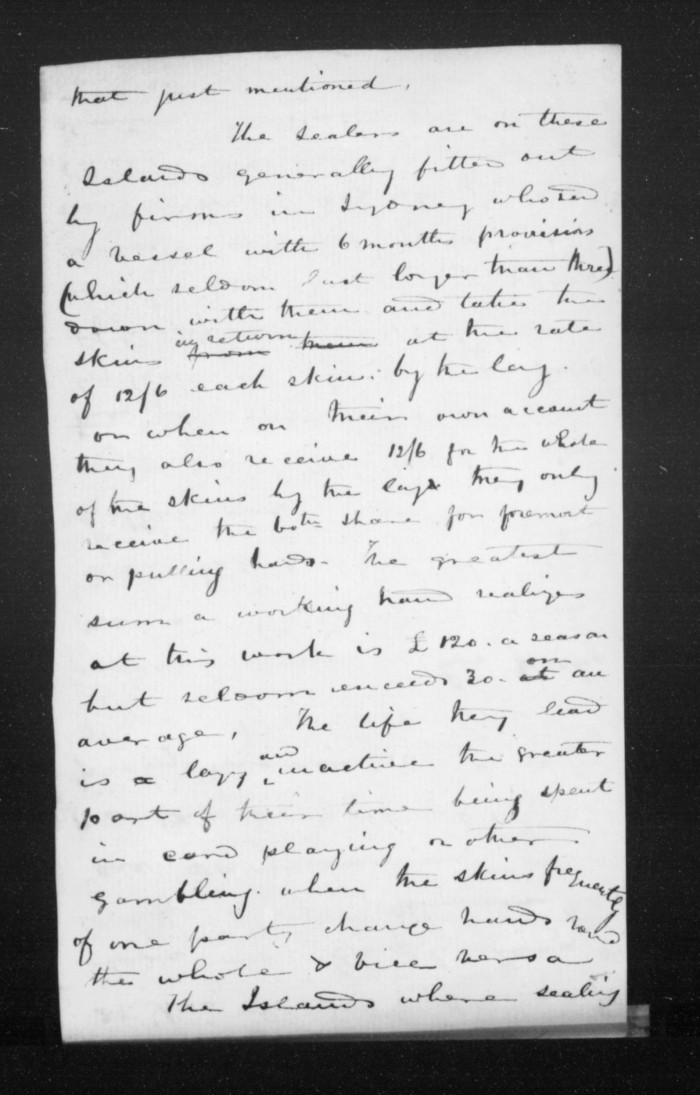 that just mentioned.
The sealers are on these
Islands generally fitted out
by firms in Sydney who send
a vessel with 6 months provisions
(which seldom last longer than three)
down with them and takes the
skins in return from them at the rate
of 12/6 each skin: by the lay.
or when on their own account
they also receive 12/6 for the whole
of the skins by the lay & they only
receive the 60th share for foremost
or pulling hands. The greatest
sum a working hand realizes
at this work is £120. a season
but seldom exceeds 30. at on an
average, The life they lead
is a lazy and inactive the greater
part of their time being spent
in card playing or other
gambling. when the skins frequently
of one party change hands
the whole & vice versa
The Islands where sealing